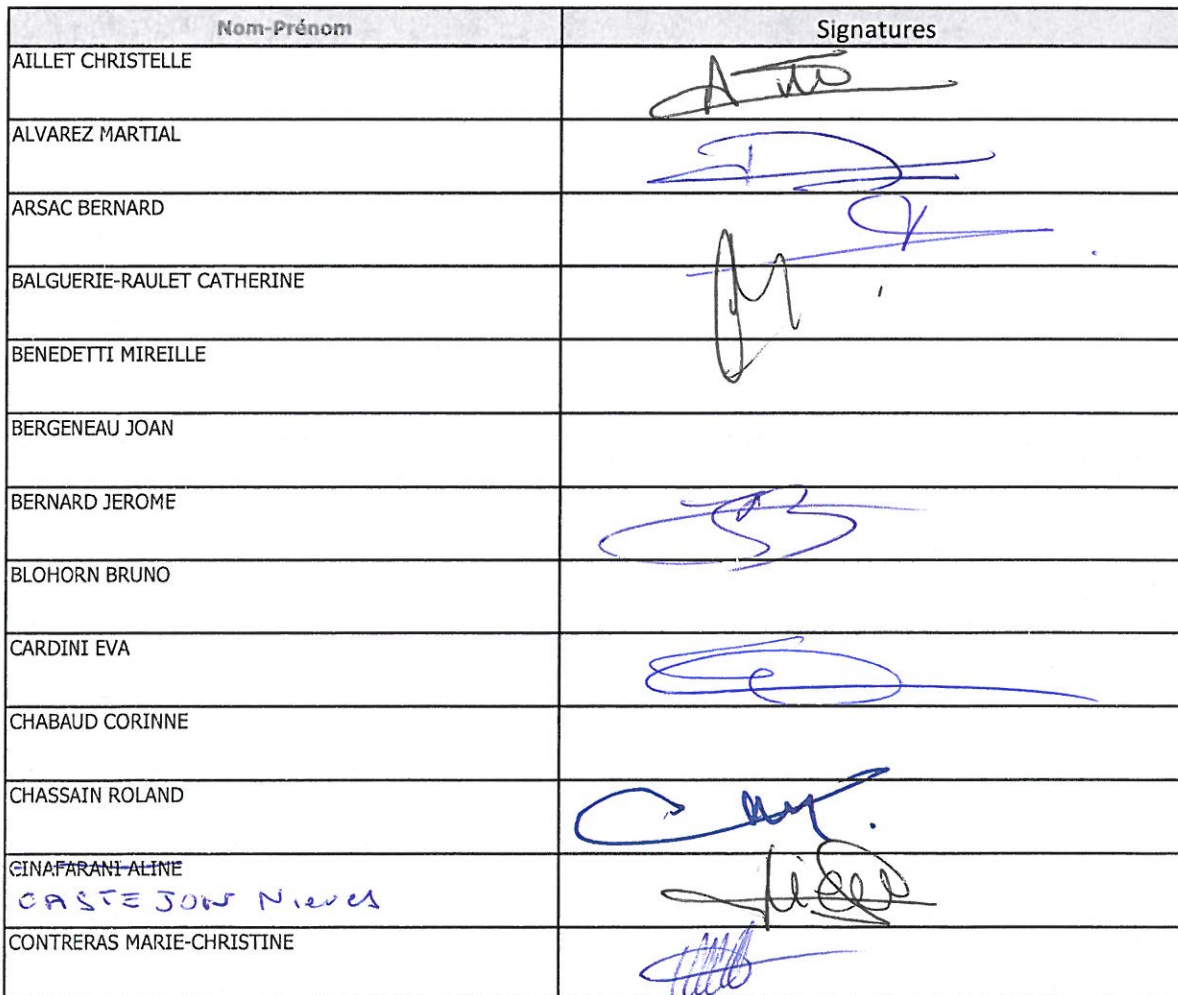 Nom-Prénom Signatures
AILLET CHRISTELLE
ALVAREZ MARTIAL
ARSAC BERNARD
BALGUERIE-RAULET CATHERINE
BENEDETTI MIREILLE
BERGENEAU JOAN
BERNARD JEROME
BLOHORN BRUNO
CARDINI EVA
CHABAUD CORINNE
CHASSAIN ROLAND
CINAFARANI ALINE
CASTEJON Nieves
CONTRERAS MARIE-CHRISTINE